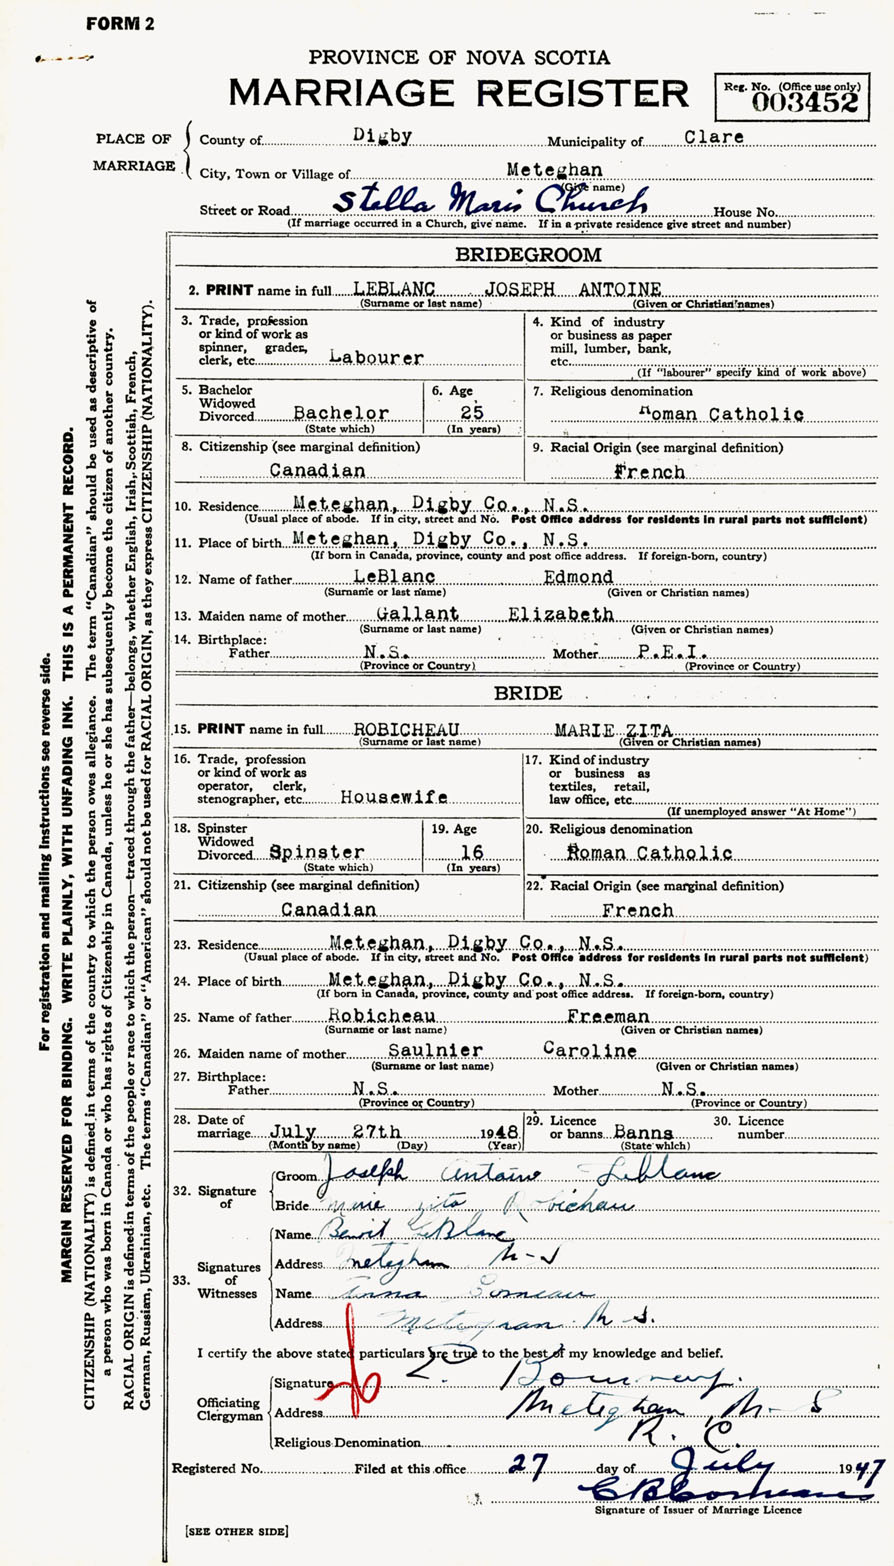 FORM 2
PROVINCE OF NOVA SCOTIA
MARRIAGE REGISTER
Reg. No. (Office use only)
003452
PLACE OF MARRIAGE
County of Digby Municipality of Clare
City, Town or Village of Meteghan
(Give name)
Street or Road Stella Maris Church House No.
(If marriage occurred in a Church, give name. If in a private residence give street and number)
BRIDEGROOM
2. PRINT name in full LEBLANC JOSEPH ANTOINE
(Surname or last name) (Given or Christian names)
3. Trade, profession
or kind of work as
spinner, grader,
clerk, etc. Labourer
4. Kind of industry
or business as paper
mill, lumber, bank,
etc.
(If "labourer" specify kind of work above)
5. Bachelor
Widowed
Divorced Bachelor
(State which)
6. Age
25
(In years)
7. Religious denomination
Roman Catholic
8. Citizenship (see marginal definition)
Canadian
9. Racial Origin (see marginal definition)
French
10. Residence Meteghan, Digby Co., N.S.
(Usual place of abode. If in city, street and No. Post Office address for residents in rural parts not sufficient)
11. Place of birth Meteghan, Digby Co., N.S.
(If born in Canada, province, county and post office address. If foreign-born, country)
12. Name of father LeBlanc Edmond
(Surname or last name) (Given or Christian names)
13. Maiden name of mother Gallant Elizabeth
(Surname or last name) (Given or Christian names)
14. Birthplace:
Father N.S. Mother P.E.I.
(Province or Country) (Province or Country)
BRIDE
15. PRINT name in full ROBICHEAU MARIE ZITA
(Surname or last name) (Given or Christian names)
16. Trade, profession
or kind of work as
operator, clerk,
stenographer, etc. Housewife
17. Kind of industry
or business as
textiles, retail,
law office, etc.
(If unemployed answer "At Home")
18. Spinster
Widowed
Divorced Spinster
(State which)
19. Age
16
(In years)
20. Religious denomination
Roman Catholic
21. Citizenship (see marginal definition)
Canadian
22. Racial Origin (see marginal definition)
French
23. Residence Meteghan, Digby Co., N.S.
(Usual place of abode. If in city, street and No. Post Office address for residents in rural parts not sufficient)
24. Place of birth Meteghan, Digby Co., N.S.
(If born in Canada, province, county and post office address. If foreign-born, country)
25. Name of father Robicheau Freeman
(Surname or last name) (Given or Christian names)
26. Maiden name of mother Saulnier Caroline
(Surname or last name) (Given or Christian names)
27. Birthplace:
Father N.S. Mother N.S.
(Province or Country) (Province or Country)
28. Date of
marriage July 27th 1948
(Month by name) (Day) (Year)
29. Licence
or banns Banns
(State which)
30. Licence
number
32. Signature of
Groom Joseph Antoine Leblanc
Bride Marie Zita Robichau
33. Signatures of Witnesses
Name Benoit LeBlanc
Address Meteghan N-S
Name Anna Comeau
Address Meteghan N S.
I certify the above stated particulars are true to the best of my knowledge and belief.
Officiating Clergyman
Signature
Address Meteghan, N-S
Religious Denomination R. C.
Registered No. Filed at this office 27 day of July 1947
Signature of Issuer of Marriage Licence
[SEE OTHER SIDE]
For registration and mailing instructions see reverse side.
MARGIN RESERVED FOR BINDING. WRITE PLAINLY, WITH UNFADING INK. THIS IS A PERMANENT RECORD.
CITIZENSHIP (NATIONALITY) is defined in terms of the country to which the person owes allegiance. The term "Canadian" should be used as descriptive of
a person who was born in Canada or who has rights of Citizenship in Canada, unless he or she has subsequently become the citizen of another country.
RACIAL ORIGIN is defined in terms of the people or race to which the person—traced through the father—belongs, whether English, Irish, Scottish, French,
German, Russian, Ukrainian, etc. The terms "Canadian" or "American" should not be used for RACIAL ORIGIN, as they express CITIZENSHIP (NATIONALITY).